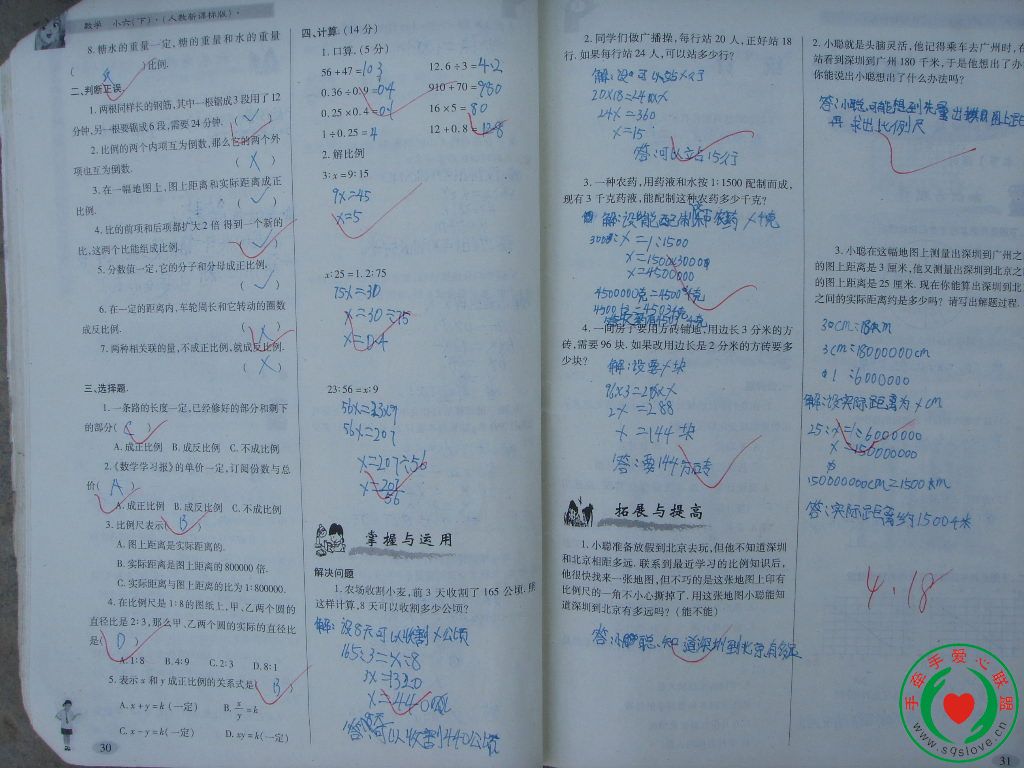 数学 小六(下)·(人教新课标版)·
8. 糖水的重量一定, 糖的重量和水的重量
( )比例.
二、判断正误.
1. 两根同样长的钢筋, 其中一根锯成 3 段用了 12
分钟, 另一根要锯成 6 段, 需要 24 分钟. ( ✓ )
2. 比例的两个内项互为倒数, 那么它的两个外
项也互为倒数. ( X )
3. 在一幅地图上, 图上距离和实际距离成正
比例. ( ✓ )
4. 比的前项和后项都扩大 2 倍 得到一个新的
比, 这两个比能组成比例. ( ✓ )
5. 分数值一定, 它的分子和分母成正比例.
( ✓ )
6. 在一定的距离内, 车轮周长和它转动的圈数
成反比例. ( X )
7. 两种相关联的量, 不成正比例, 就成反比例.
( X )
三、选择题.
1. 一条路的长度一定, 已经修好的部分和剩下
的部分( C )
A. 成正比例 B. 成反比例 C. 不成比例
2.《数学学习报》的单价一定, 订阅份数与总
价( A )
A. 成正比例 B. 成反比例 C. 不成比例
3. 比例尺表示( B )
A. 图上距离是实际距离的.
B. 实际距离是图上距离的 800000 倍.
C. 实际距离与图上距离的比为 1:800000.
4. 在比例尺是 1:8 的图纸上, 甲、乙两个圆的
直径比是 2:3, 那么甲、乙两个圆的实际的直径比
是( D )
A. 1:8 B. 4:9 C. 2:3 D. 8:1
5. 表示 x 和 y 成正比例的关系式是( B )
A. x+y=k (一定) B. x/y=k
C. x-y=k(一定) D. xy=k(一定)
30
四、计算. (14 分)
1. 口算. (5 分)
56+47=103 12.6÷3=4.2
0.36÷0.9=0.4 910+70=980
0.25×0.4=0.1 16×5=80
1÷0.25=4 12+0.8=12.8
2. 解比例
3:x=9:15
9x=45
x=5
x:25=1.2:75
75x=30
x=30÷75
x=0.4
23:56=x:9
56x=23×9
56x=207
x=207÷56
x=207/56
掌握与运用
解决问题
1. 农场收割小麦, 前 3 天收割了 165 公顷. 照
这样计算, 8 天可以收割多少公顷?
解:设8天可以收割x公顷
165:3=x:8
3x=1320
x=440
答:可以收割440公顷
2. 同学们做广播操, 每行站 20 人, 正好站 18
行. 如果每行站 24 人, 可以站多少行?
20×18=24×x
24x=360
x=15
答:可以立占15行
3. 一种农药, 用药液和水按 1:1500 配制而成,
现有 3 千克药液, 能配制这种农药多少千克?
3000:x=1:1500
x=1500×3000
x=4500000
4500000克=4500千克
4. 一间房子要用方砖铺地, 用边长 3 分米的方
砖, 需要 96 块. 如果改用边长是 2 分米的方砖要多
少块?
解:设要x块
2x=288
x=144块
答:要144方砖
拓展与提高
1. 小聪准备放假到北京去玩, 但他不知道深圳
和北京相距多远. 联系到最近学习的比例知识后,
他很快找来一张地图, 但不巧的是这张地图上印有
比例尺的一角不小心撕掉了. 用这张地图小聪能知
道深圳到北京有多远吗? (能不能)
2. 小聪就是头脑灵活, 他记得乘车去广州时, 在
站看到深圳到广州 180 千米, 于是他想出了办
你能说出小聪想出了什么办法吗?
再求出比例尺
3. 小聪在这幅地图上测量出深圳到广州之
的图上距离是 3 厘米, 他又测量出深圳到北京之
的图上距离是 25 厘米. 现在你能算出深圳到北
之间的实际距离约是多少吗? 请写出解题过程.
3cm:18000000cm
1:6000000
解:设实际距离为xcm
25:x=1:6000000
x=150000000
150000000cm=1500km
答:实际距离约1500千米
4.18
31
手牵手爱心联盟
www.sqslove.cn